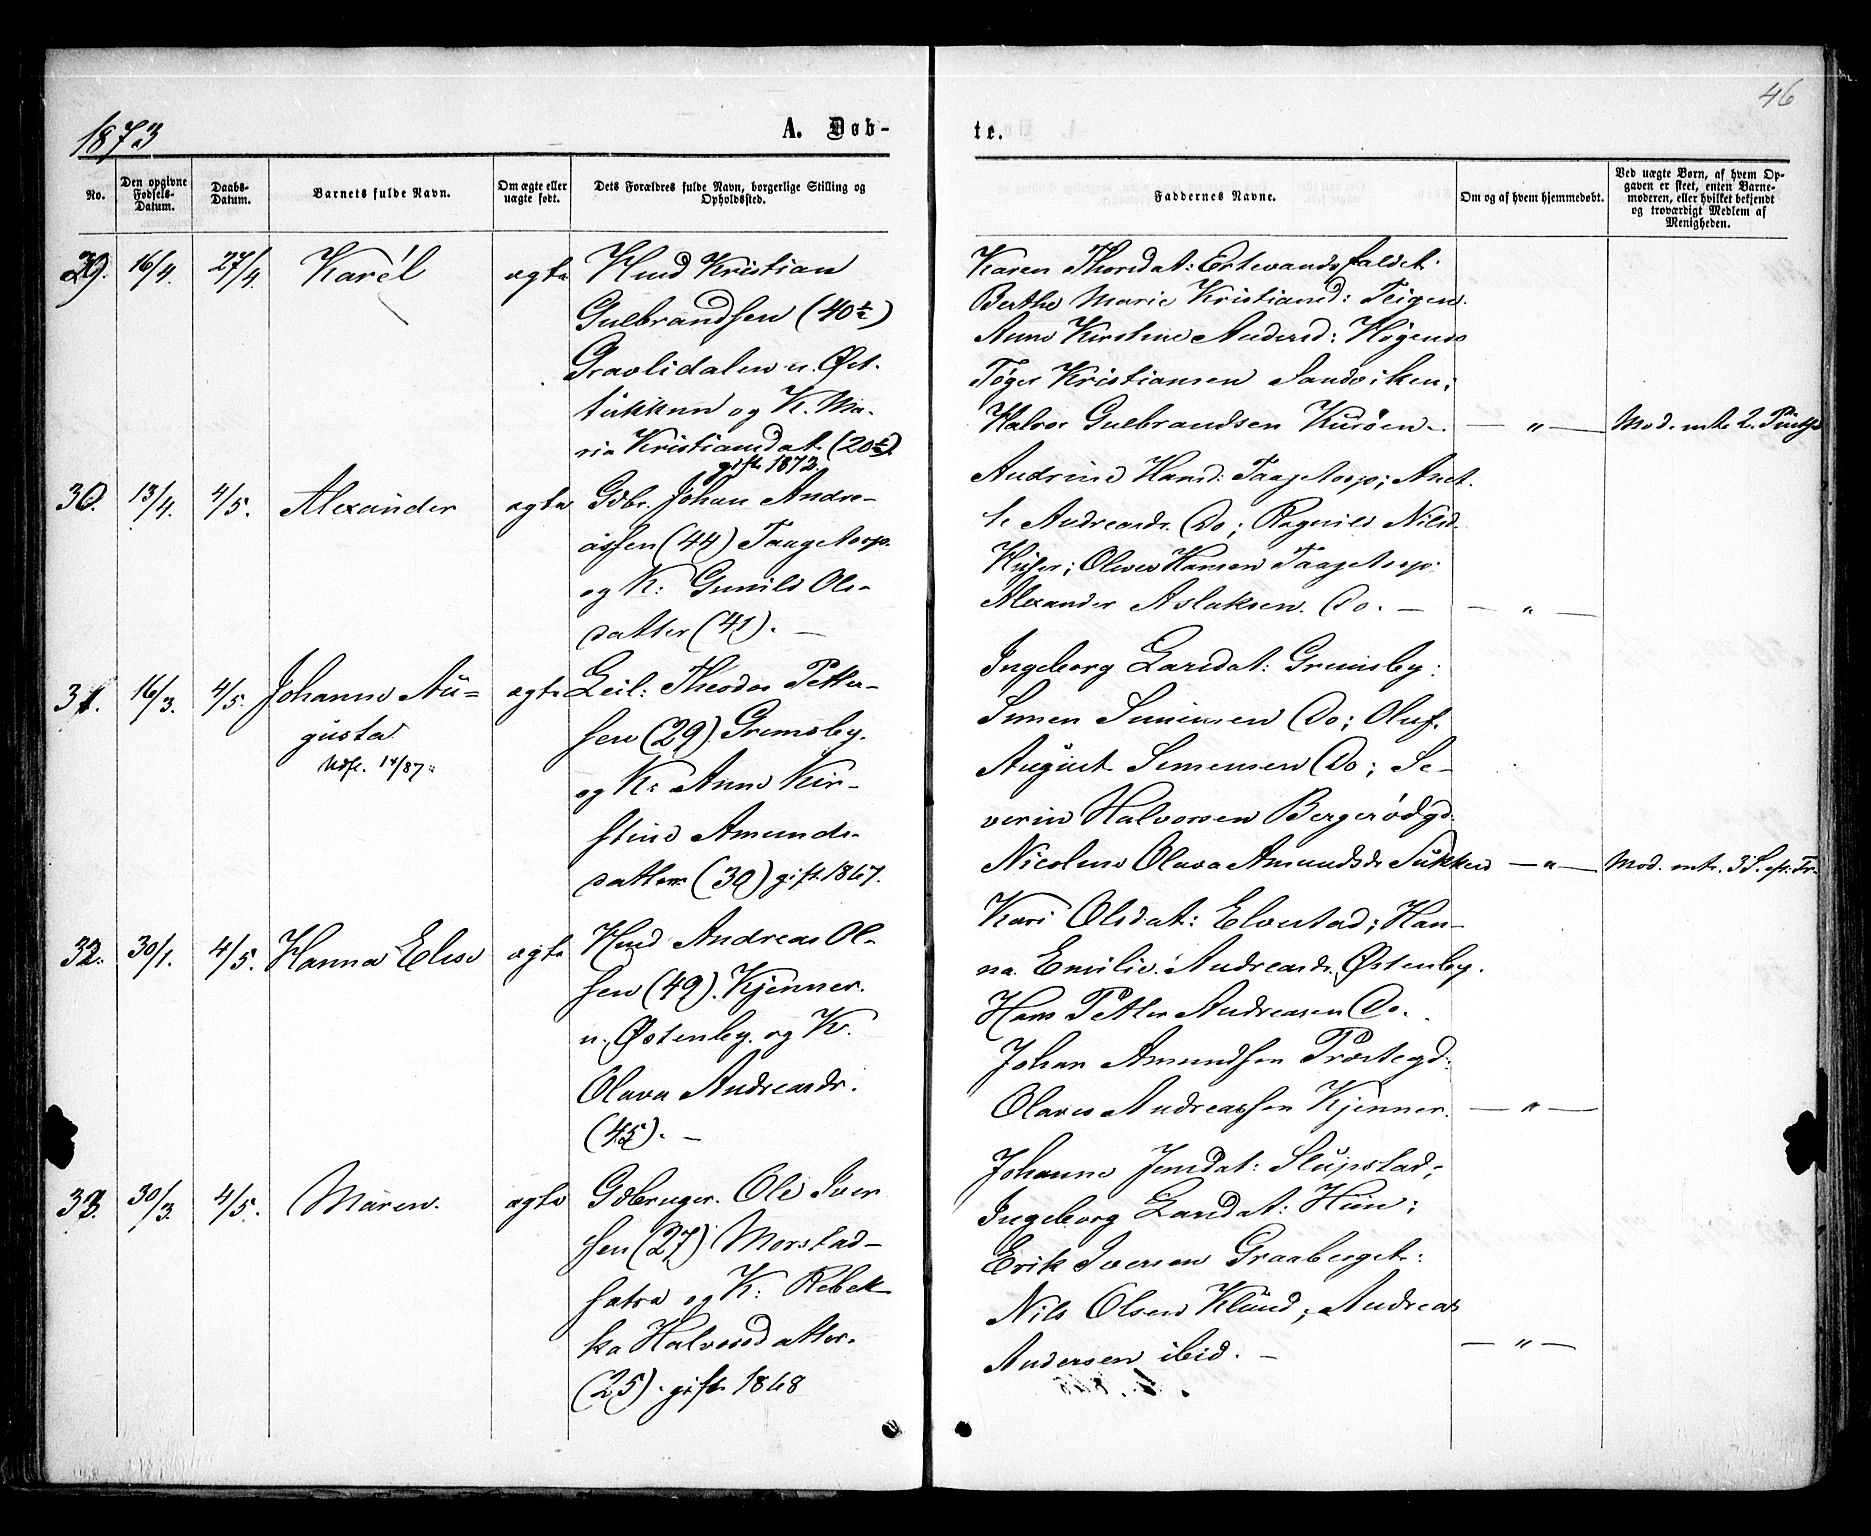 46
1873
A. Døb-
te.
No.
Den opgivne Fødsels-Datum.
Daabs-Datum.
Barnets fulde Navn.
Om ægte eller uægte født.
Dets Forældres fulde Navn, borgerlige Stilling og Opholdssted.
Faddernes Navne.
Om og af hvem hjemmedøbt.
Ved uægte Børn, af hvem Opgaven er skeet, enten Barnemoderen, eller hvilket bekjendt og troværdigt Medlem af Menigheden.
29. 16/4. 27/4. Karél ægte
Hmd Kristian
Gulbrandsen (40½)
Gravlidalen u. Øst.
tukkun og K. Ma-
ria Kristiansdat. (20½)
gift. 1872.
Karen Thorsdat: Ertevandsfaldet.
Berthe Marie Kristiansd: Teigen.
Anne Kirstine Andersd: Høgenes
Tøger Kristiansen Sandviken;
Halvor Gulbrandsen Kurøen. — „ — Mod. intr. 2. Pintsd
30. 13/4. 4/5. Alexander ægte
Gdbr. Johan Andre-
assen (44) Taagetorp.
og K: Gunild Ols-
datter (41). —
Andrine Hansd: Taagetorp; Anet-
te Andreasdr. Do; Ragnild Nilsd.
Huser; Oluves Hansen Taagetorp.
Alexander Aslaksen. Do. — — „ —
31. 16/3. 4/5. Johanne Au-
gusta
Udfl. 14/87 ægte
Leil: Theodor Petter-
sen (29) Gremsby.
og K: Anne Kir-
stine Amunds-
datter (30) gift. 1867.
Ingeborg Larsdat: Gremsby:
Simen Simensen Do; Oluf.
August Simensen Do; Se-
verin Halvorsen Bergerødgd.
Nicoline Olava Amundsdr Tukkun — „ — Mod. intr. 3 S. eft. Tr.
32. 30/1. 4/5. Hanna Elise ægte
Hmd Andreas Ol-
sen (49). Kjenner.
u. Østenby. og K.
Olava Andreasdr.
(45). —
Kari Olsdat: Elvestad; Han-
na Emilie Andreasdr. Østenby.
Hans Petter Andreasen Do.
Johan Amundsen Præstegd.
Olaves Andreassen Kjenner. — „ —
33. 30/3. 4/5. Maren. ægte
Gdbruger. Ole Iver
sen (27) Morstad-
sætra og K: Rebek
ka Halvorsdatter.
(25). gift 1868
Johanne Jensdat: Slupstad;
Ingeborg Larsdat: Hun;
Erik Iversen Graaberget:
Nils Olsen Klund; Andreas
Andersen ibid. — — „ —